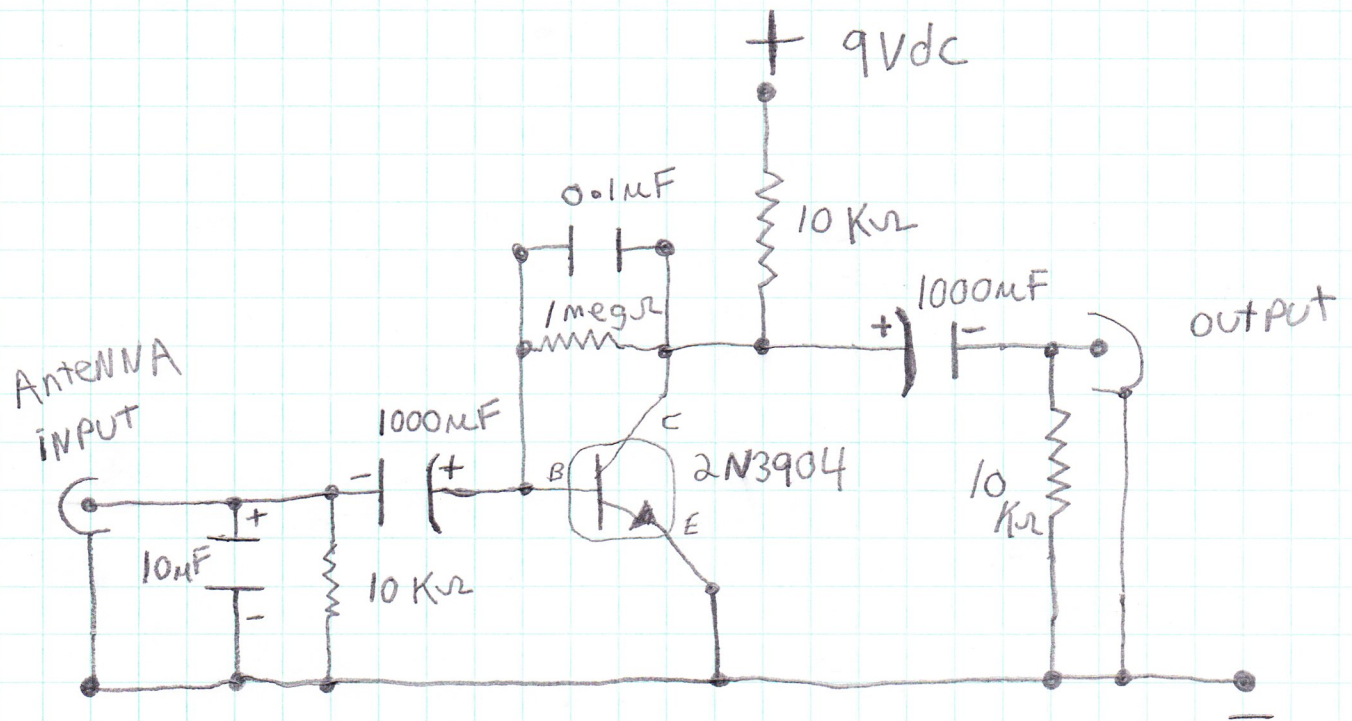 + 9Vdc
0.1µF
10 KΩ
1megΩ
1000µF
+ -
OUTPUT
AnteNNA
iNPUT
1000µF
C
- +
B
2N3904
E
10
KΩ
+
10µF
-
10 KΩ
-